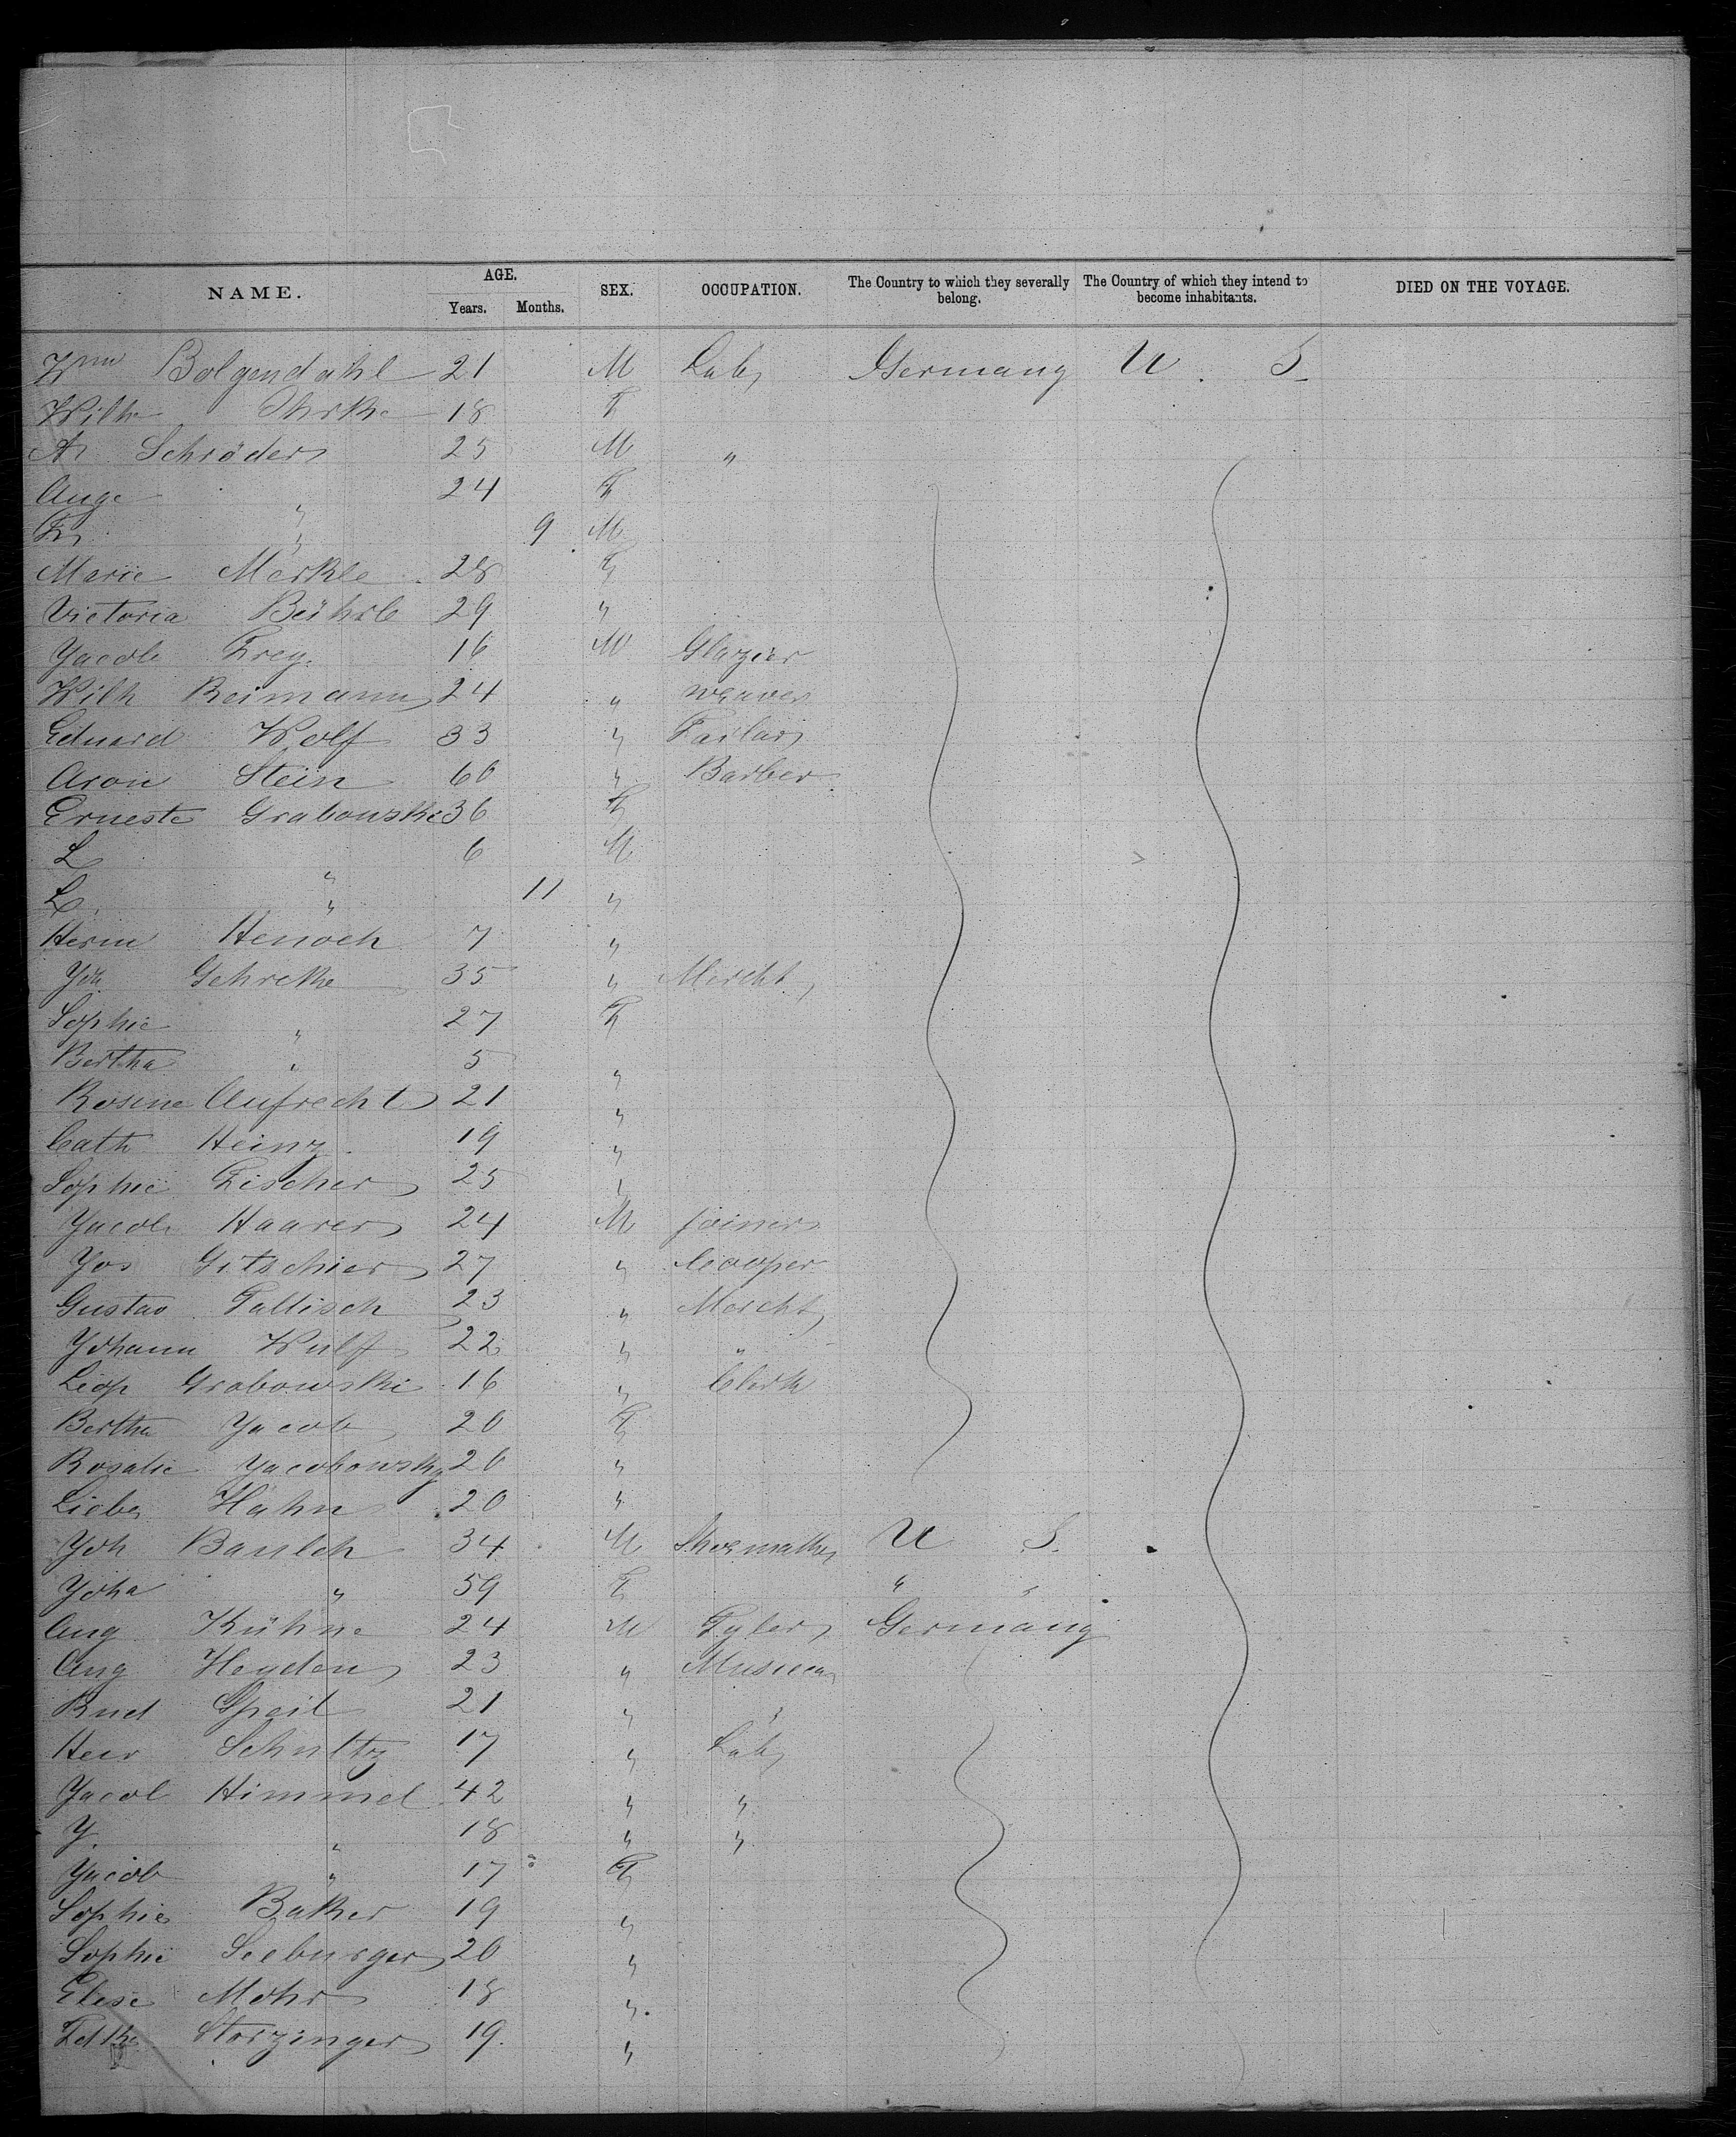 NAME. AGE. Years. Months. SEX. OCCUPATION. The Country to which they severally belong. The Country of which they intend to become inhabitants. DIED ON THE VOYAGE.
Wm Bolgendahl 21 M Lab Germany U. S.
Wilh 18 F
A Schröder 25 M "
Auge " 24 F
F " 9 M
Marie Merkle 28 F
Victoria Bührle 29 "
Yacob Frey 16 M Glazier
Wilh Reimann 24 " weaver
Eduard Wolf 33 " Tailor
Aron Stein 60 " Barber
Erneste Grabowski 36 F
L " 6 M
L " 11 "
Herm Henoch 7 "
Yoh Gehreke 35 " Mercht
Sophie " 27 F
Bertha " 5 "
Rosine Aufrecht 21 "
Cath Heinz 19 "
Sophie Fischer 25 "
Yacob Haarer 24 M joiner
Yos Gitschier 27 " Cooper
Gustav Tallisch 23 " Mercht
Yohann Wulf 22 " "
Leop Grabowski 16 " Clerk
Bertha Yacob 20 F
Rosalie Yacobowsky 20 "
Liebe Hahn 20 "
Yoh Bauleh 34 M Shoemaker U S.
Yoha " 59 F " "
Aug Kühne 24 M Tyler Germany
Aug Heyden 23 " Musican
Rud 21 " "
Heir Schultz 17 " Lab
Yacob Himmel 42 " "
Y. " 18 " "
Yacob " 17 F
Sophie Baker 19 "
Sophie Seeburger 20 "
Elise Mohr 18 "
Storzinger 19 "